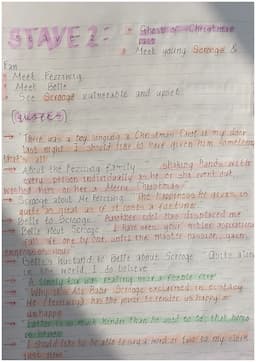 STAVE 2:
• Ghost of Christmas
past
• Meet young Scrooge &
Fan
• Meet Fezziwig
• Meet Belle
• See Scrooge vulnerable and upset.
(QUOTES)
→ There was a boy singing a Christmas Carol at my door
last night. I should like to have given him something
that's all
→ About the Fezziwig Family shaking hands with
every person individually as he or she went out
wished him or her a Merry Christmas
→ Scrooge about Mr Fezziwig The happiness he gives is
quite as great as if it cost a fortune
→ Belle to Scrooge Another idol has displaced me
→ Belle about Scrooge I have seen your nobler aspirations
fall off one by one, until the master passion, gain,
engrosses you
→ Belle's husband to Belle about Scrooge Quite alone
in the world, I do believe
→ A lonely boy was reading near a feeble fire
→ Why it's Ali Baba! Scrooge exclaimed in ecstasy
→ He (Fezziwig) has the power to render us happy or
unhappy
→ Father is so much kinder than he used to be, that home's
→ I should like to be able to say a word or two to my clerk
just now